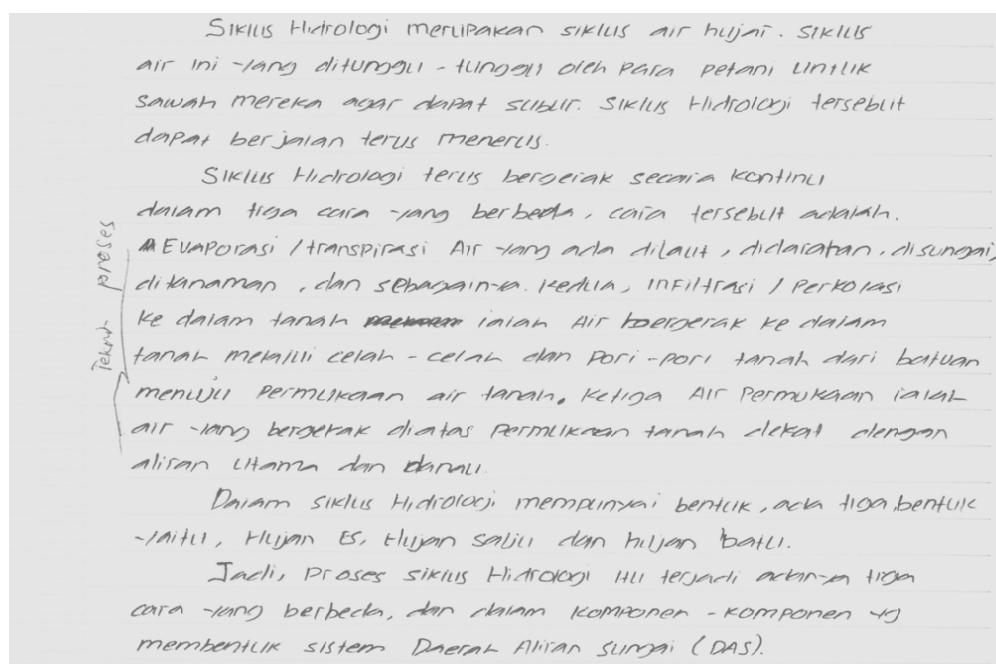 Siklus Hidrologi merupakan siklus air hujan. siklus
air ini yang ditunggu-tunggu oleh para petani untuk
sawah mereka agar dapat subur. siklus Hidrologi tersebut
dapat berjalan terus menerus.
Siklus Hidrologi terus bergerak secara kontinu
dalam tiga cara yang berbeda, cara tersebut adalah.
Evaporasi / transpirasi Air yang ada dilaut, didaratan, disungai,
ditanaman, dan sebagainya. kedua, infiltrasi / Perkolasi
ke dalam tanah ialah Air bergerak ke dalam
tanah melalui celah-celah dan pori-pori tanah dari batuan
menuju permukaan air tanah. ketiga Air Permukaan ialah
air yang bergerak diatas permukaan tanah dekat dengan
aliran utama dan danau.
Dalam siklus Hidrologi mempunyai bentuk, ada tiga bentuk
yaitu, Hujan Es, Hujan salju dan hujan batu.
Jadi, Proses siklus Hidrologi itu terjadi adanya tiga
cara yang berbeda, dan dalam komponen-komponen yg
membentuk sistem Daerah Aliran sungai (DAS).
proses